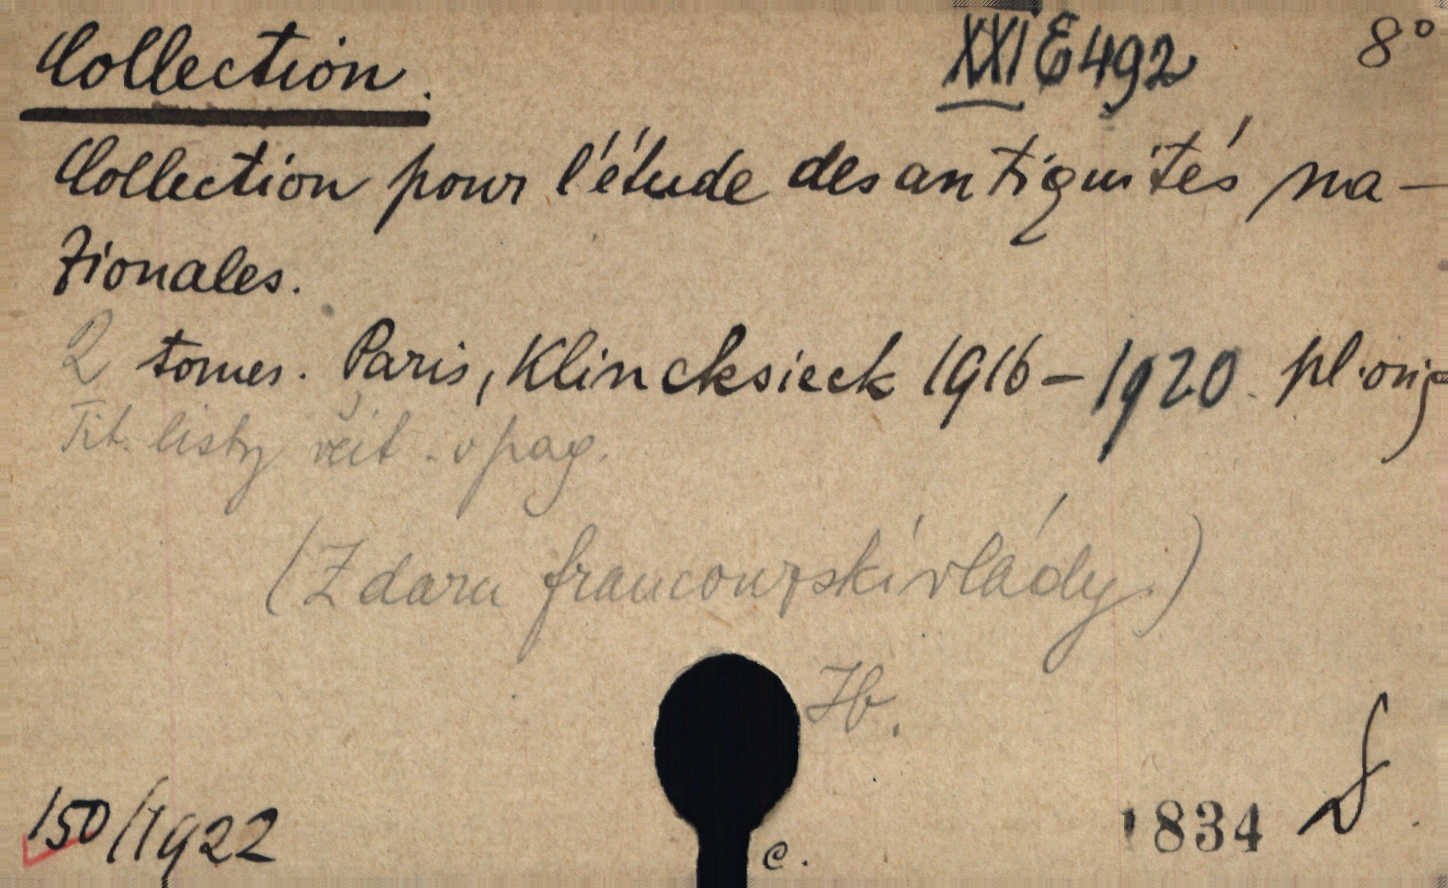 Collection. XXI E 492 8°
Collection pour l'étude des antiquités na-
tionales.
2 tomes. Paris, Klincksieck 1916-1920. pl. orig
Tit. listy včít. v pag.
(Z daru francouzské vlády.)
150/1922 c. 1834